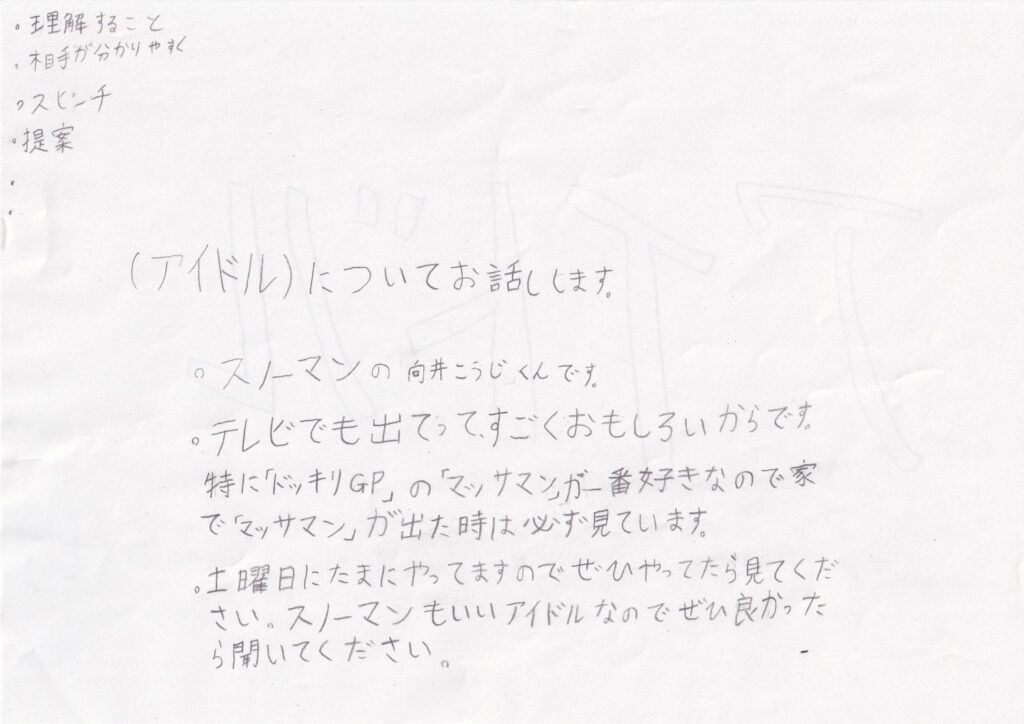 。理解すること
、相手が分かりやすく
。スピーチ
。提案
(アイドル)についてお話しします。
。スノーマンの向井こうじくんです。
。テレビでも出てって、すごくおもしろいからです。
特に「ドッキリGP」の「マッサマン」が一番好きなので家
で「マッサマン」が出た時は必ず見ています。
。土曜日にたまにやってますのでぜひやってたら見てくだ
さい。スノーマンもいいアイドルなのでぜひ良かった
ら聞いてください。
アイドル